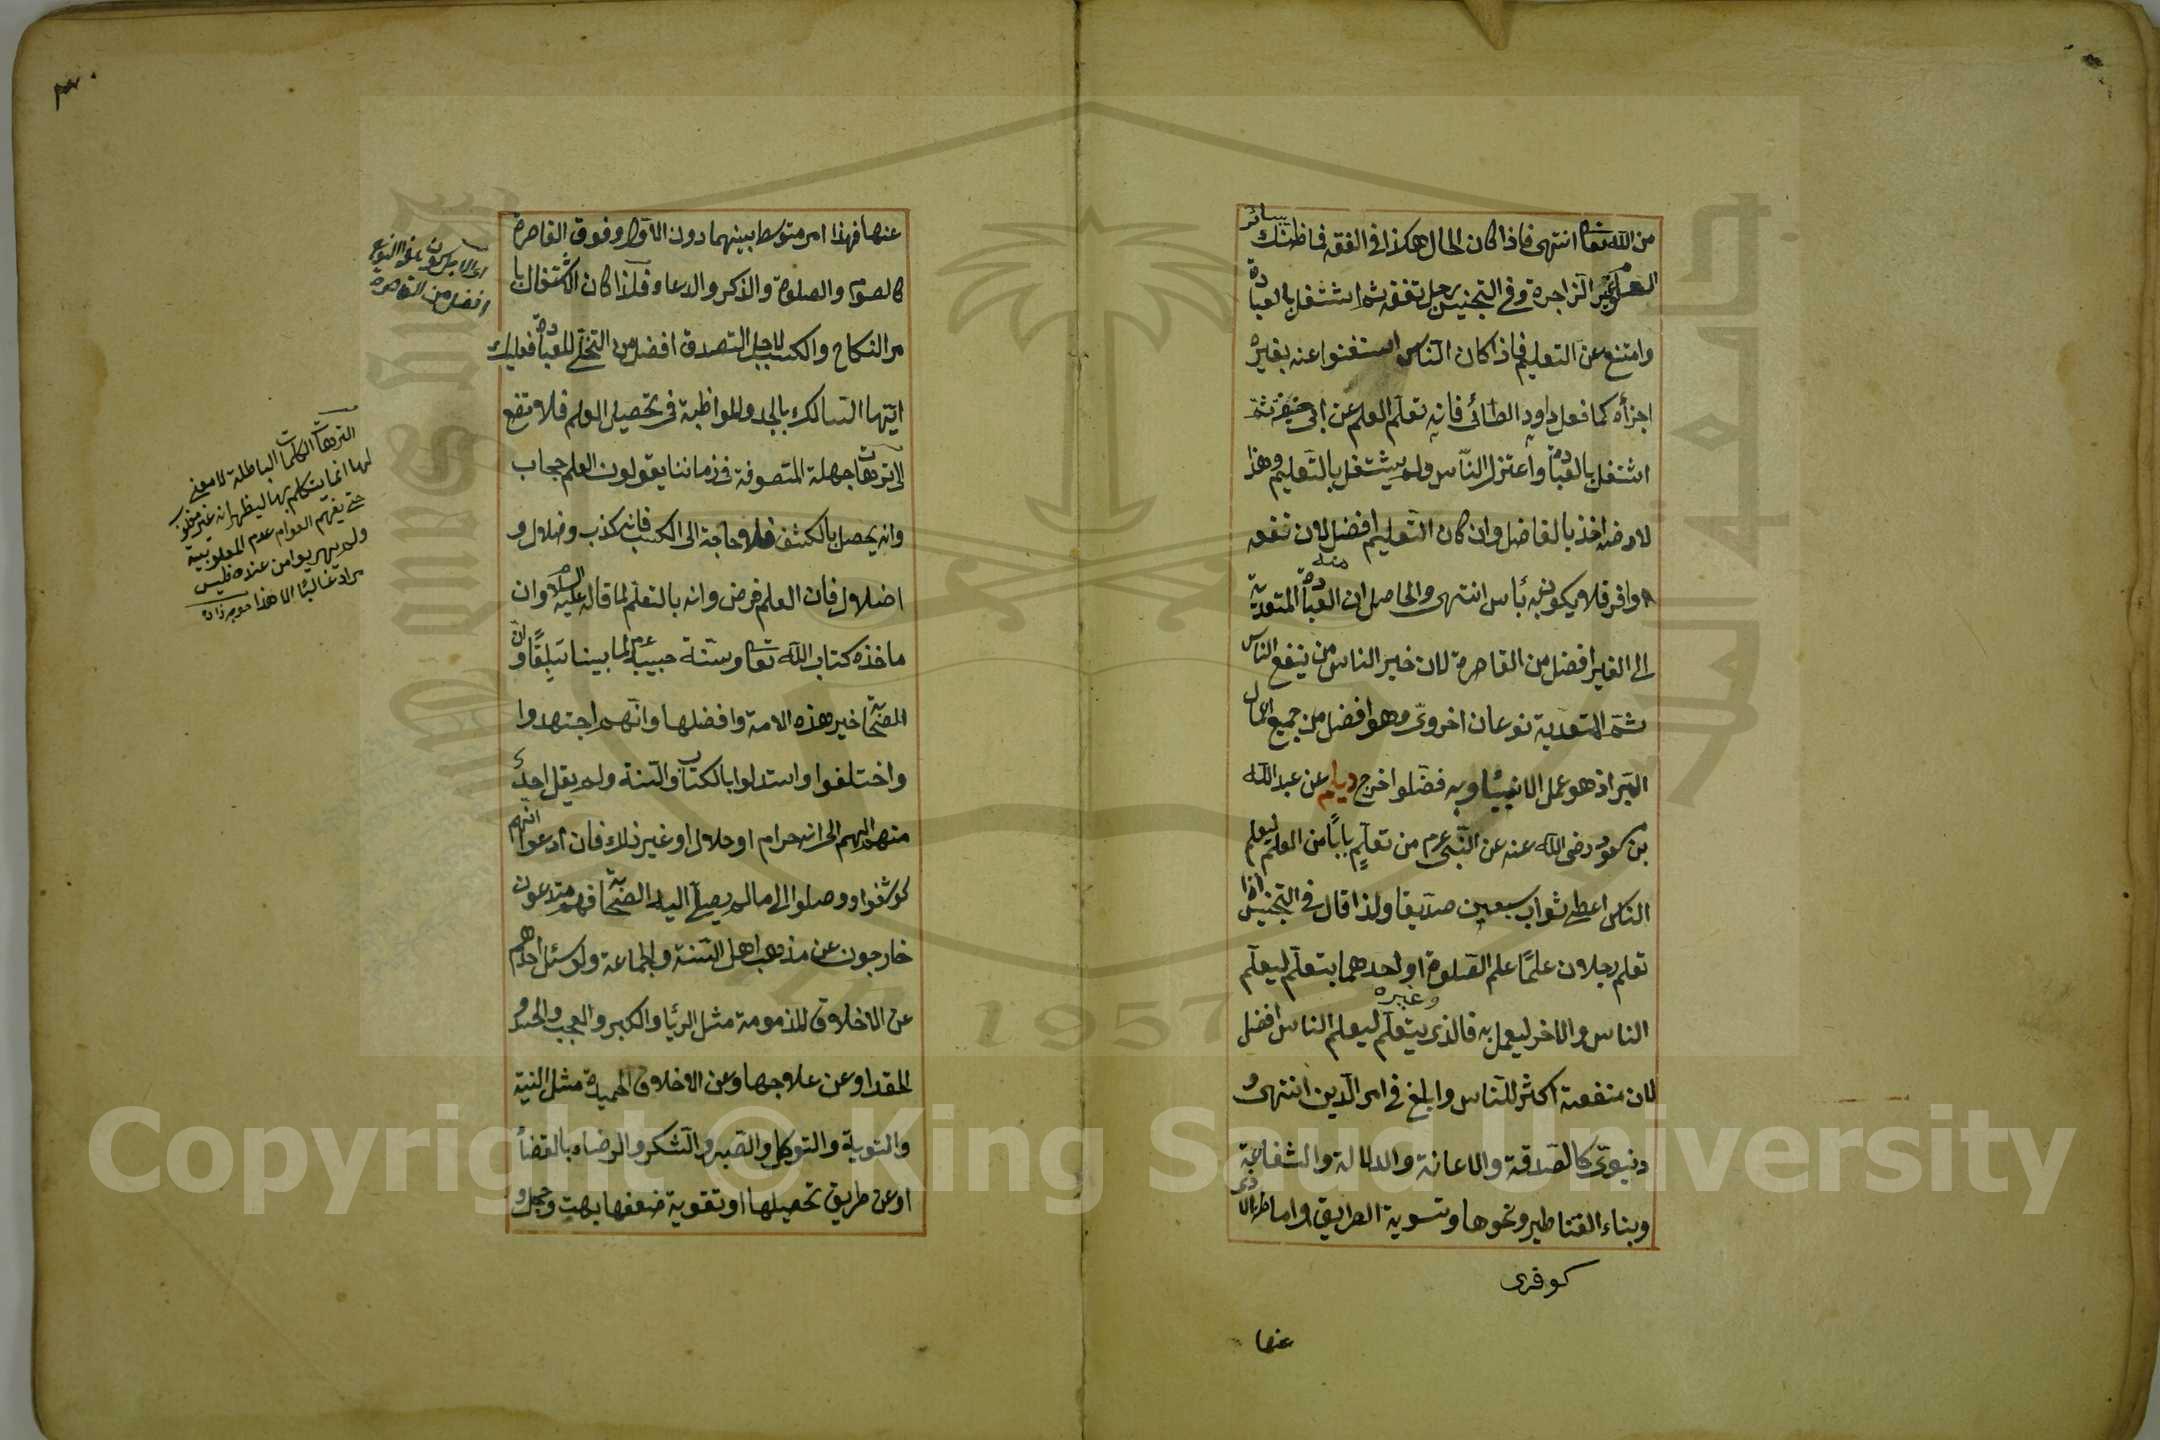 من الله تعا انتهى فاذا كان الحال هكذا فى الفقه فما ظنك بسائر
الزاجرة وفى التجنيس رجل تفقه ثم اشتغل بالعبادة
وامتنع عن التعليم فاذا كان الناس استغنوا عنه بغيره
اجزأه كما فعل داود الطائى فانه تعلم العلم عن ابى حنيفة ثم
اشتغل بالعبادة واعتزل الناس ولم يشتغل بالتعليم وهذا
لانه اخذ بالفاضل وان كان التعليم افضل لان نفعه
اوفر فلا يكون به بأس انتهى والحاصل ان العبادة المتعدية
الى الغير افضل من القاصرة لان خير الناس من ينفع الناس
ثم المتعدية نوعان اخروى وهو افضل من جميع اعمال
البر اذ هو عمل الانبياء وبه فضلوا اخرج ديلم عن عبد الله
بن مسعود رضى الله عنه عن النبى عم من تعلم بابا من العلم ليعلم
الناس اعطى ثواب سبعين صديقا ولذا قال فى التجنيس اذا
تعلم رجلان علما علم الصلوة او احدهما يتعلم ليعلم
الناس والاخر ليعمل به فالذى يتعلم ليعلم الناس افضل
وغيره
لان منفعته اكثر للناس وابلغ فى امر الدين انتهى و
دنيوى كالصدقة والاعانة والدلالة والشفاعة
وبناء القناطير ونحوها وتسوية الطريق واماطة الاذى
عنها
عنها فهذا امر متوسط بينهما دون الاول وفوق القاصرة
كالصوم والصلوة والذكر والدعاء فلذا كان الاشتغال با
مر النكاح والكسب لاجل التصدق افضل من التخلى للعبادة فعليك
ايها السالك بالجد والمواظبة فى تحصيل العلم فلا تضع
الى ترهات جهلة المتصوفة فى زماننا يقولون العلم حجاب
وانه يحصل بالكشف فلا حاجة الى الكسب فانه كذب وضلال و
اضلال فان العلم فرض وانه بالتعلم لما قاله عليه السلام وان
ماخذه كتاب الله تعا وسنة حبيبه عم لما بينا سابقا وان
الصحابة خير هذه الامة وافضلها وانهم اجتهدوا
واختلفوا واستدلوا بالكتاب والسنة ولم يقل احد
منهم الهم الى انه حرام او حلال او غير ذلك فان ادعوا انهم
كوشفوا ووصلوا الى ما لم يصل اليه الصحابة فهم مبتدعون
خارجون عن مذهب اهل السنة والجماعة ولو سئل احدهم
عن الاخلاق المذمومة مثل الريا والكبر والعجب والحسد و
الحقد او عن علاجها وعن الاخلاق الحميدة مثل النية
والتوبة والتوكل والصبر والشكر والرضاء بالقضاء
او عن طريق تحصيلها او تقوية ضعفها بهت وخجل و
افضل من القاصرة
الترهات الكلمات الباطلة لا معنى
لها انما يتكلم بها ليظهر انه غير مغلوب
حتى يفهم العوام عدم المغلوبية
ولم يهربوا من عنده فليس
مراد غالبا الا هذا خوجه زاده
Copyright © King Saud University
1957